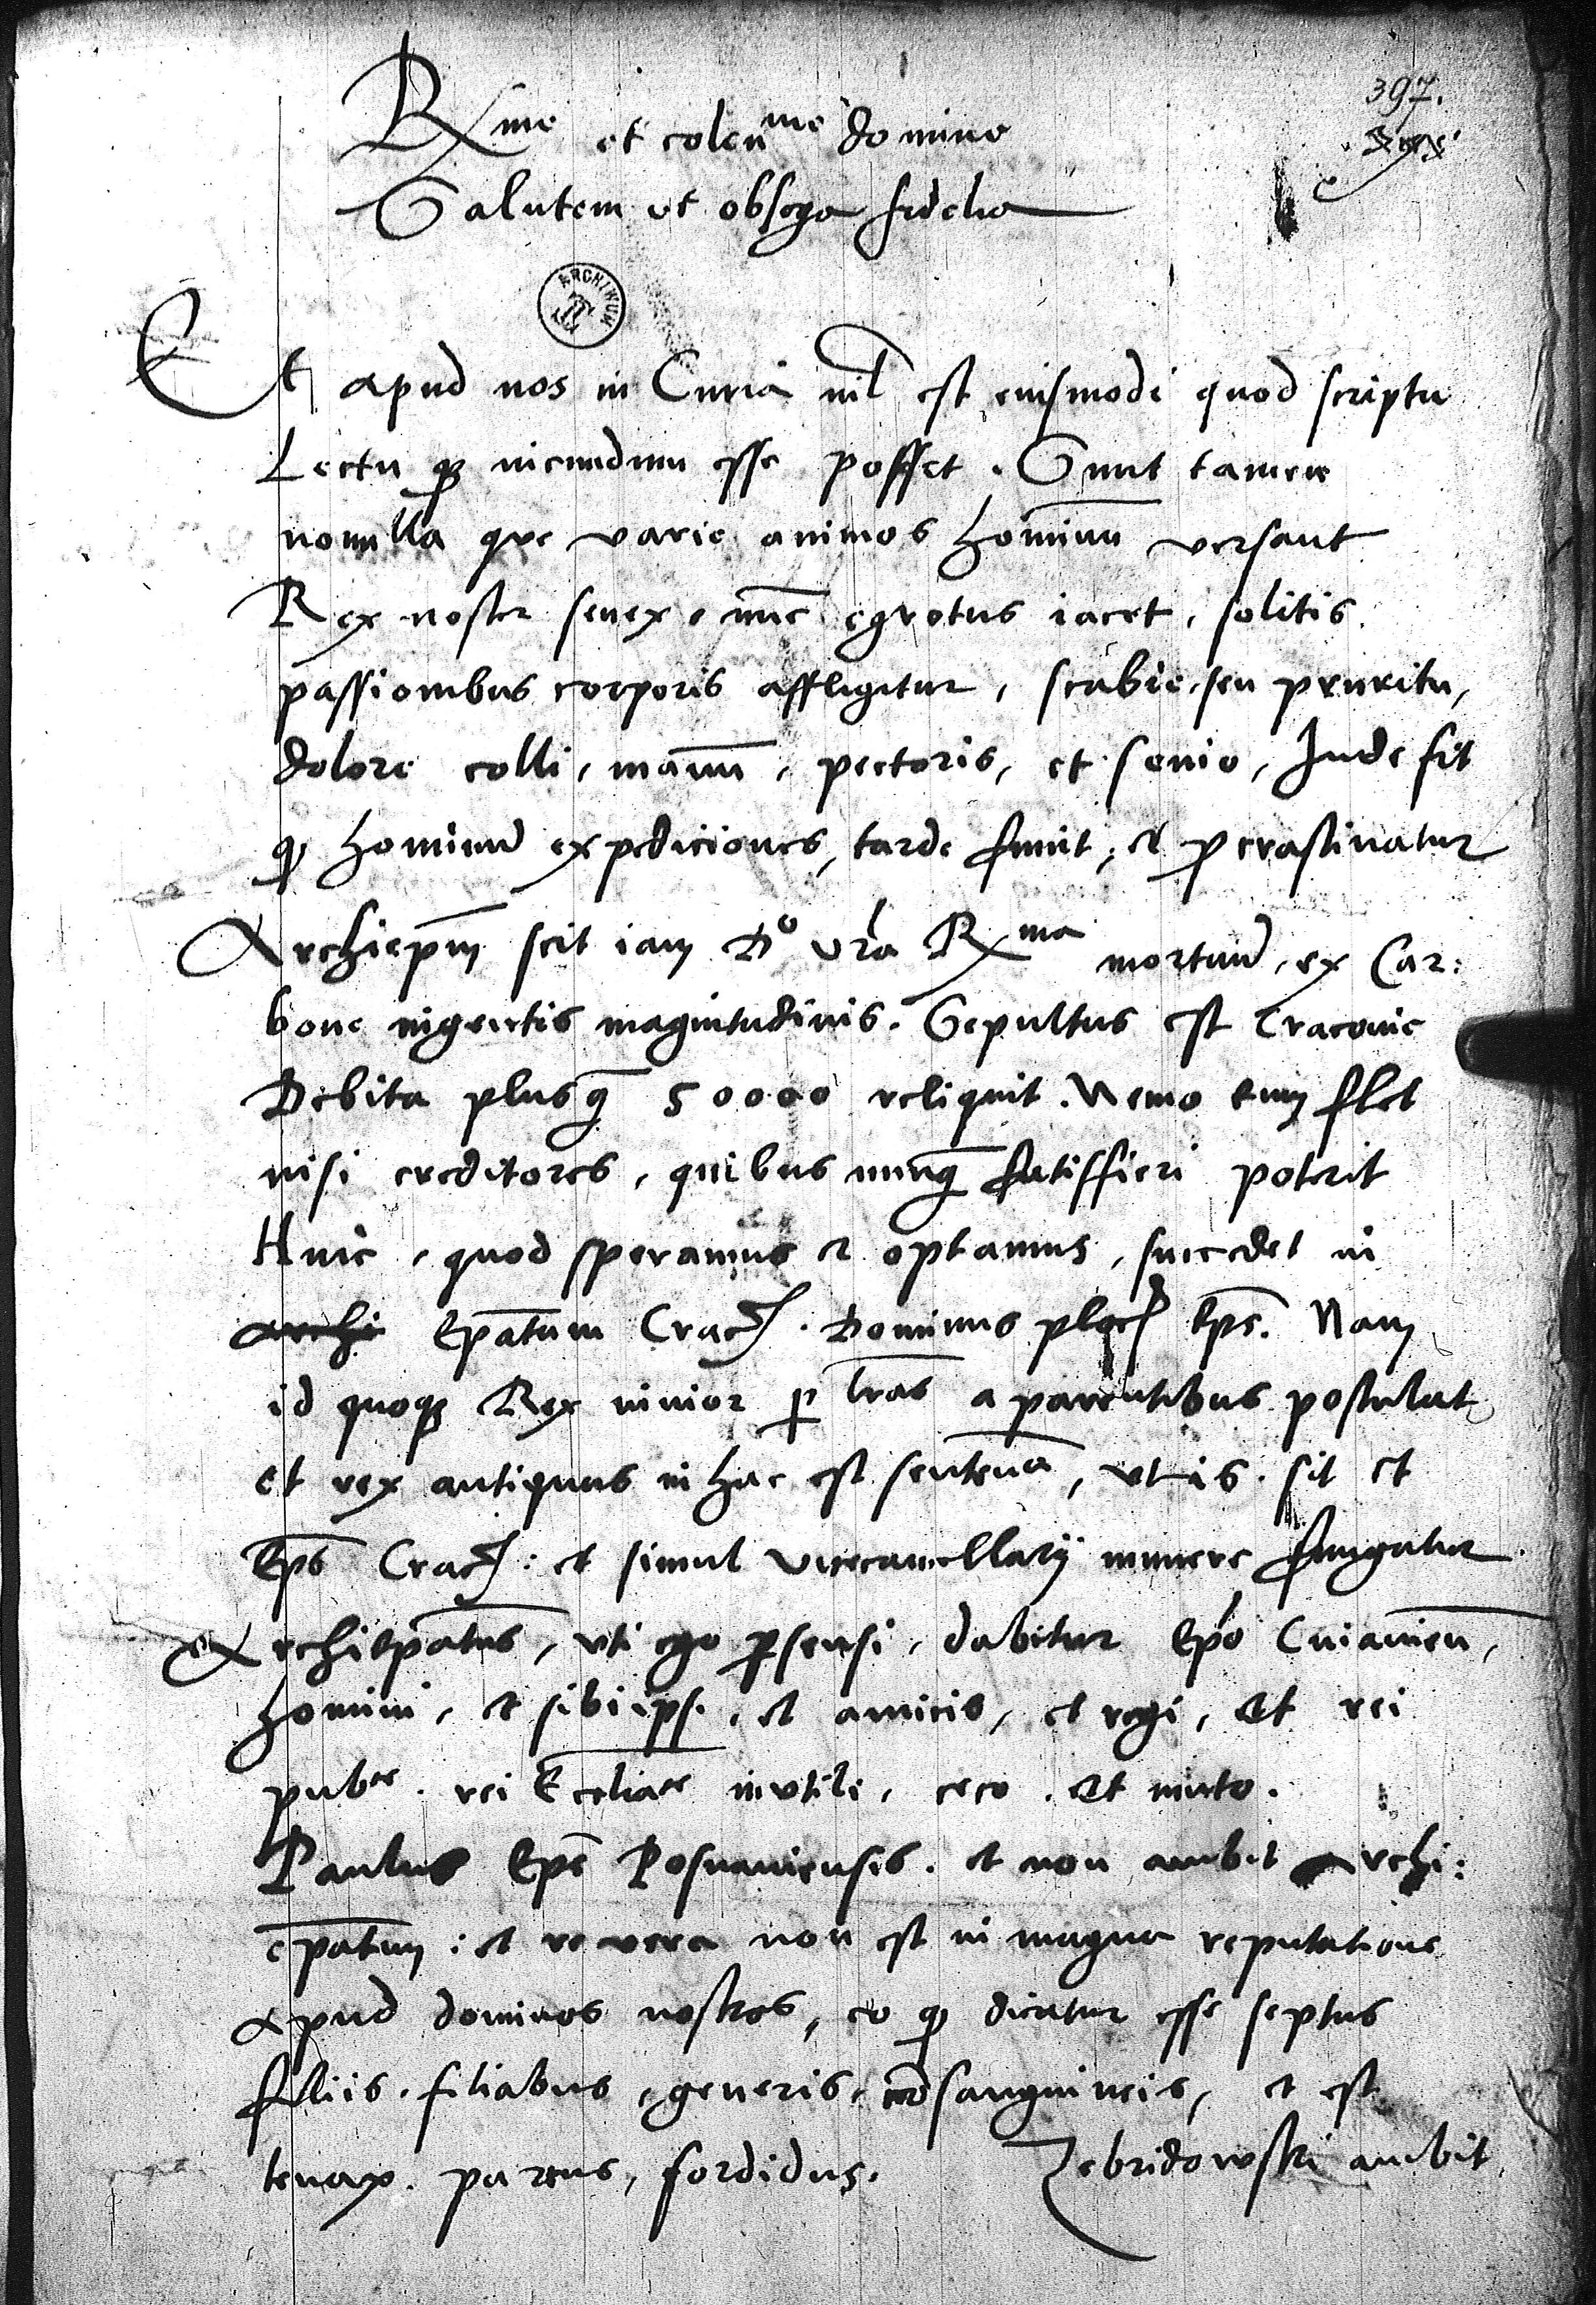 397.
Rx^me et colen^me domine
Salutem et obseqa fidelia
ARCHIWUM
Et apud nos in Curia nil est eiusmodi quod scriptu
Lectu q₃ iucundum esse posset. Sunt tamen
nonnulla que varie animos hominũ versant
Rex noster senex, nũc egrotus iacet, solitis
passionibus corporis affligitur, scabie, seu pruritu,
dolore colli, manuũ, pectoris, et senio, Inde fit
q₃ hominũ expediciones, tarde sunt, et p̱crastinatur
Archiep̃m scit iam D^o vr̃a Rx^ma mortuũ, ex Car:
bone ingentis magnitudinis. Sepultus est Cracovie
Debita plusq̃ 50000 reliquit. Nemo eum flet
nisi creditores, quibus nunq̃ satisffieri poterit
Huic, quod speramus et optamus, succedet in
archi Ep̃atum Crac̃. Dominus ploc̃ Ep̃s. Nam
id quoq₃ Rex iunior p̱ l̃ras a parentibus postulat
et rex antiquus in hac est sententia, ut is sit et
Ep̃s Crac̃: et simul vicecancellarij munere fungatur.
Archiep̃atus, uti ego p̱sensi, dabitur Ep̃o Cuiavien̄,
homini, et sibi ipsi, et amicis, et regi, Et rei
pub^ce. rei Eccl̃iace inutili, ceco. Et muto.
Paulus Ep̃s Posnaniensis. et non ambit Archi:
ep̃atum: et re vera non est in magna reputatione
apud dominos nostros, eo q₃ dicatur esse septus
filiis, filiabus, generis, cõsanguineis, et est
tenax. parcus, sordidus. Zebridowski ambit